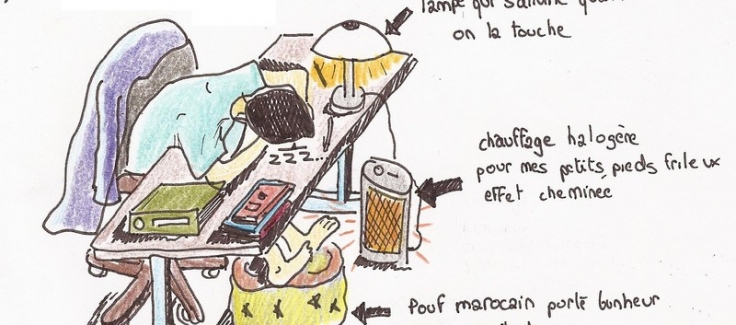 lampe qui s'allume
on la touche
zzz...
chauffage halogère
pour mes petits pieds frileux
effet cheminee
Pouf marocain porte bonheur